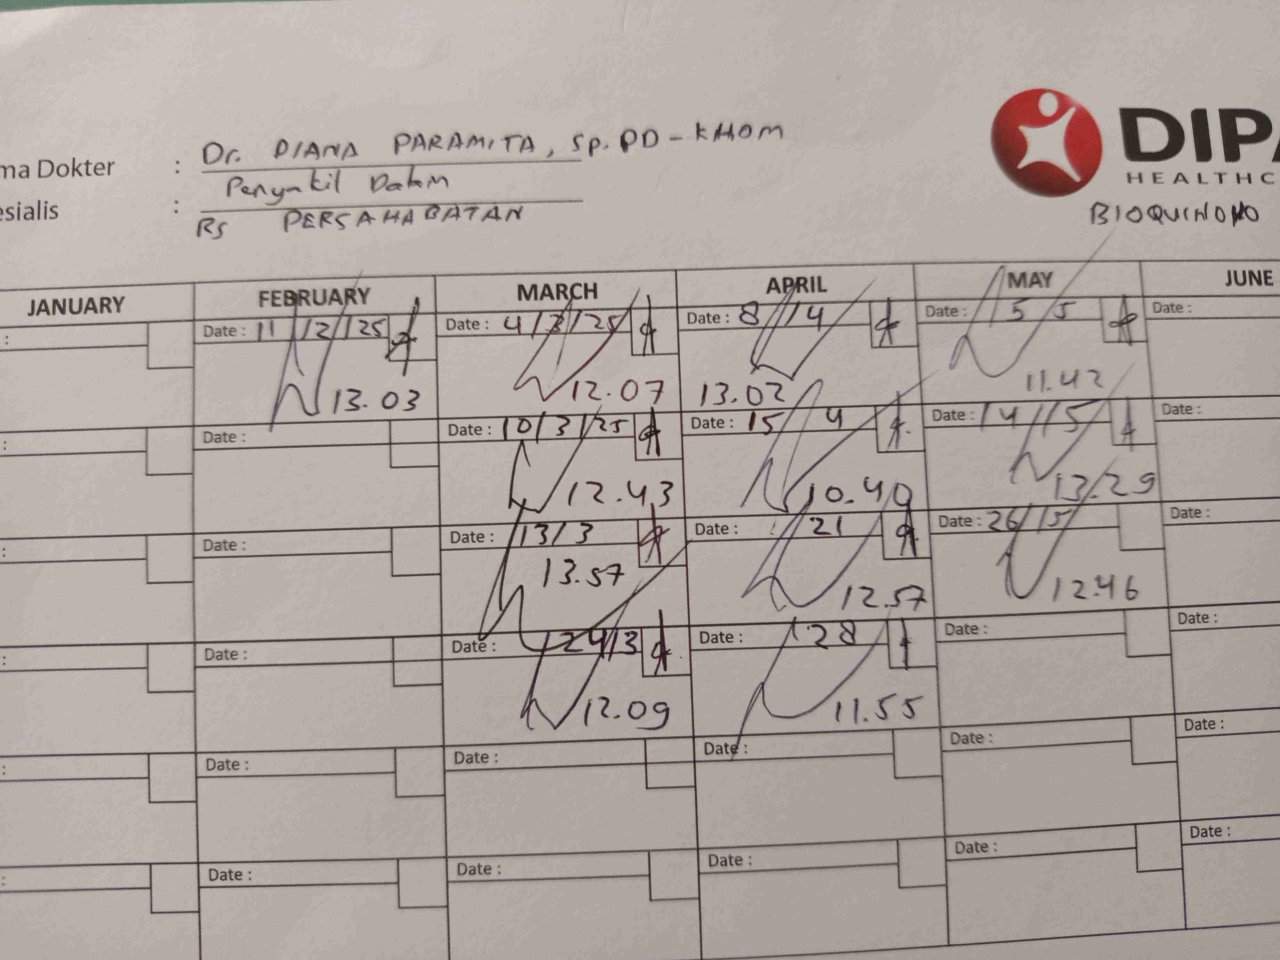 ma Dokter : Dr. DIANA PARAMITA, Sp.PD-KHOM
esialis : Penyakit Dalam
RS PERSAHABATAN
DIPA
HEALTHC
BIOQUINONO
JANUARY FEBRUARY MARCH APRIL MAY JUNE
: Date : 11/2/25 Date : 4/3/25 Date : 8/4 Date : 5 5 Date :
13.03 12.07 13.02 11.42
: Date : Date : 10/3/25 Date : 15 4 Date : 14/5 Date :
12.43 10.40 13.29
: Date : Date : 13/3 Date : 21 Date : 26/5 Date :
13.57 12.57 12.46
: Date : Date : 24/3 Date : 28 Date : Date :
12.09 11.55
: Date : Date : Date : Date : Date :
: Date : Date : Date : Date : Date :